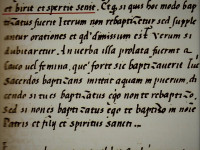 et biriē et sperne senie. Et q, si quis hoc modo bap
tizatus fuerit Iterum non rebaptizetur sed supple
antur orationes et qd omissum est. Verum si
dubitaretur. An verba illa prolata fuerint a
uel femina, que forte sic baptizauerit Tuc
Sacerdos baptizans mittat aquam in puerum, di
cendo si tu es baptizatus ego non te rebaptizo,
Sed si non es baptizatus ego te baptizo in noīe
Patris et filij et spiritus sancti